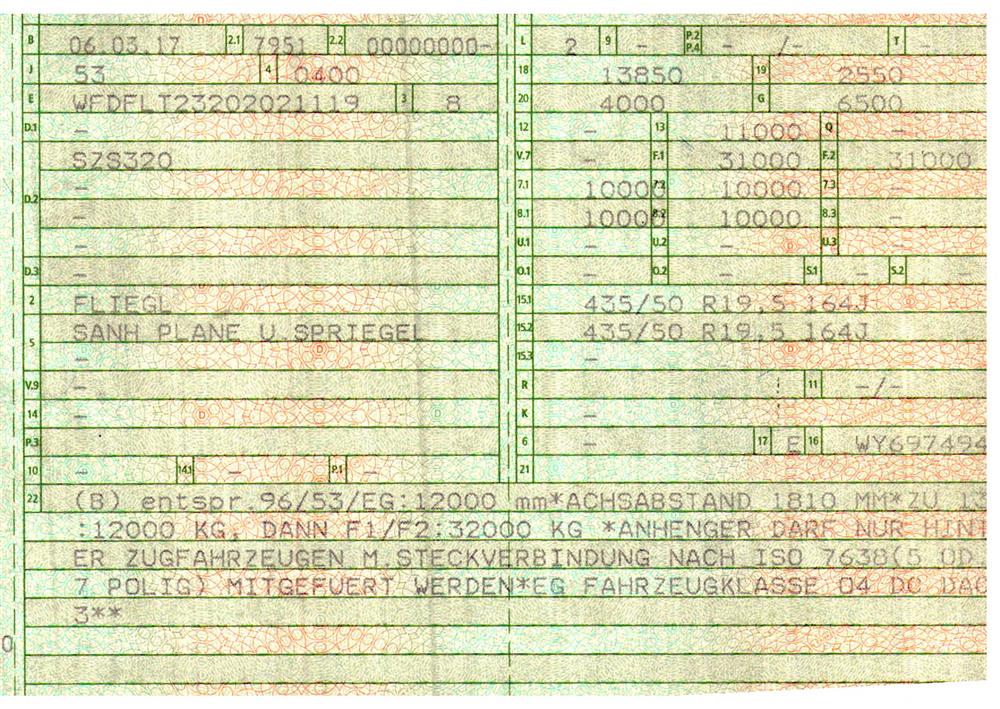 B 06.03.17 2.1 7951 2.2 00000000- L 2 9 - P.2 P.4 - /- T -
J 53 4 0400 18 13850 19 2550
E WFDFLT23202021119 3 8 20 4000 G 6500
D.1 - 12 - 13 11000 Q -
SZS320 V.7 - F.1 31000 F.2 31000
D.2 - 7.1 10000 7.2 10000 7.3 -
- 8.1 10000 8.2 10000 8.3 -
- U.1 - U.2 - U.3 -
D.3 - O.1 - O.2 - S.1 - S.2 -
2 FLIEGL 15.1 435/50 R19,5 164J
5 SANH PLANE U.SPRIEGEL 15.2 435/50 R19,5 164J
- 15.3 -
V.9 - R 11 -/-
14 - K -
P.3 6 - 17 E 16 WY697494
10 - 14.1 - P.1 - 21
22 (B) entspr.96/53/EG:12000 mm*ACHSABSTAND 1810 MM*ZU 13
:12000 KG, DANN F1/F2:32000 KG *ANHENGER DARF NUR HINT
ER ZUGFAHRZEUGEN M.STECKVERBINDUNG NACH ISO 7638(5 OD
7 POLIG) MITGEFUERT WERDEN*EG FAHRZEUGKLASSE O4 DC DAC
3**
0